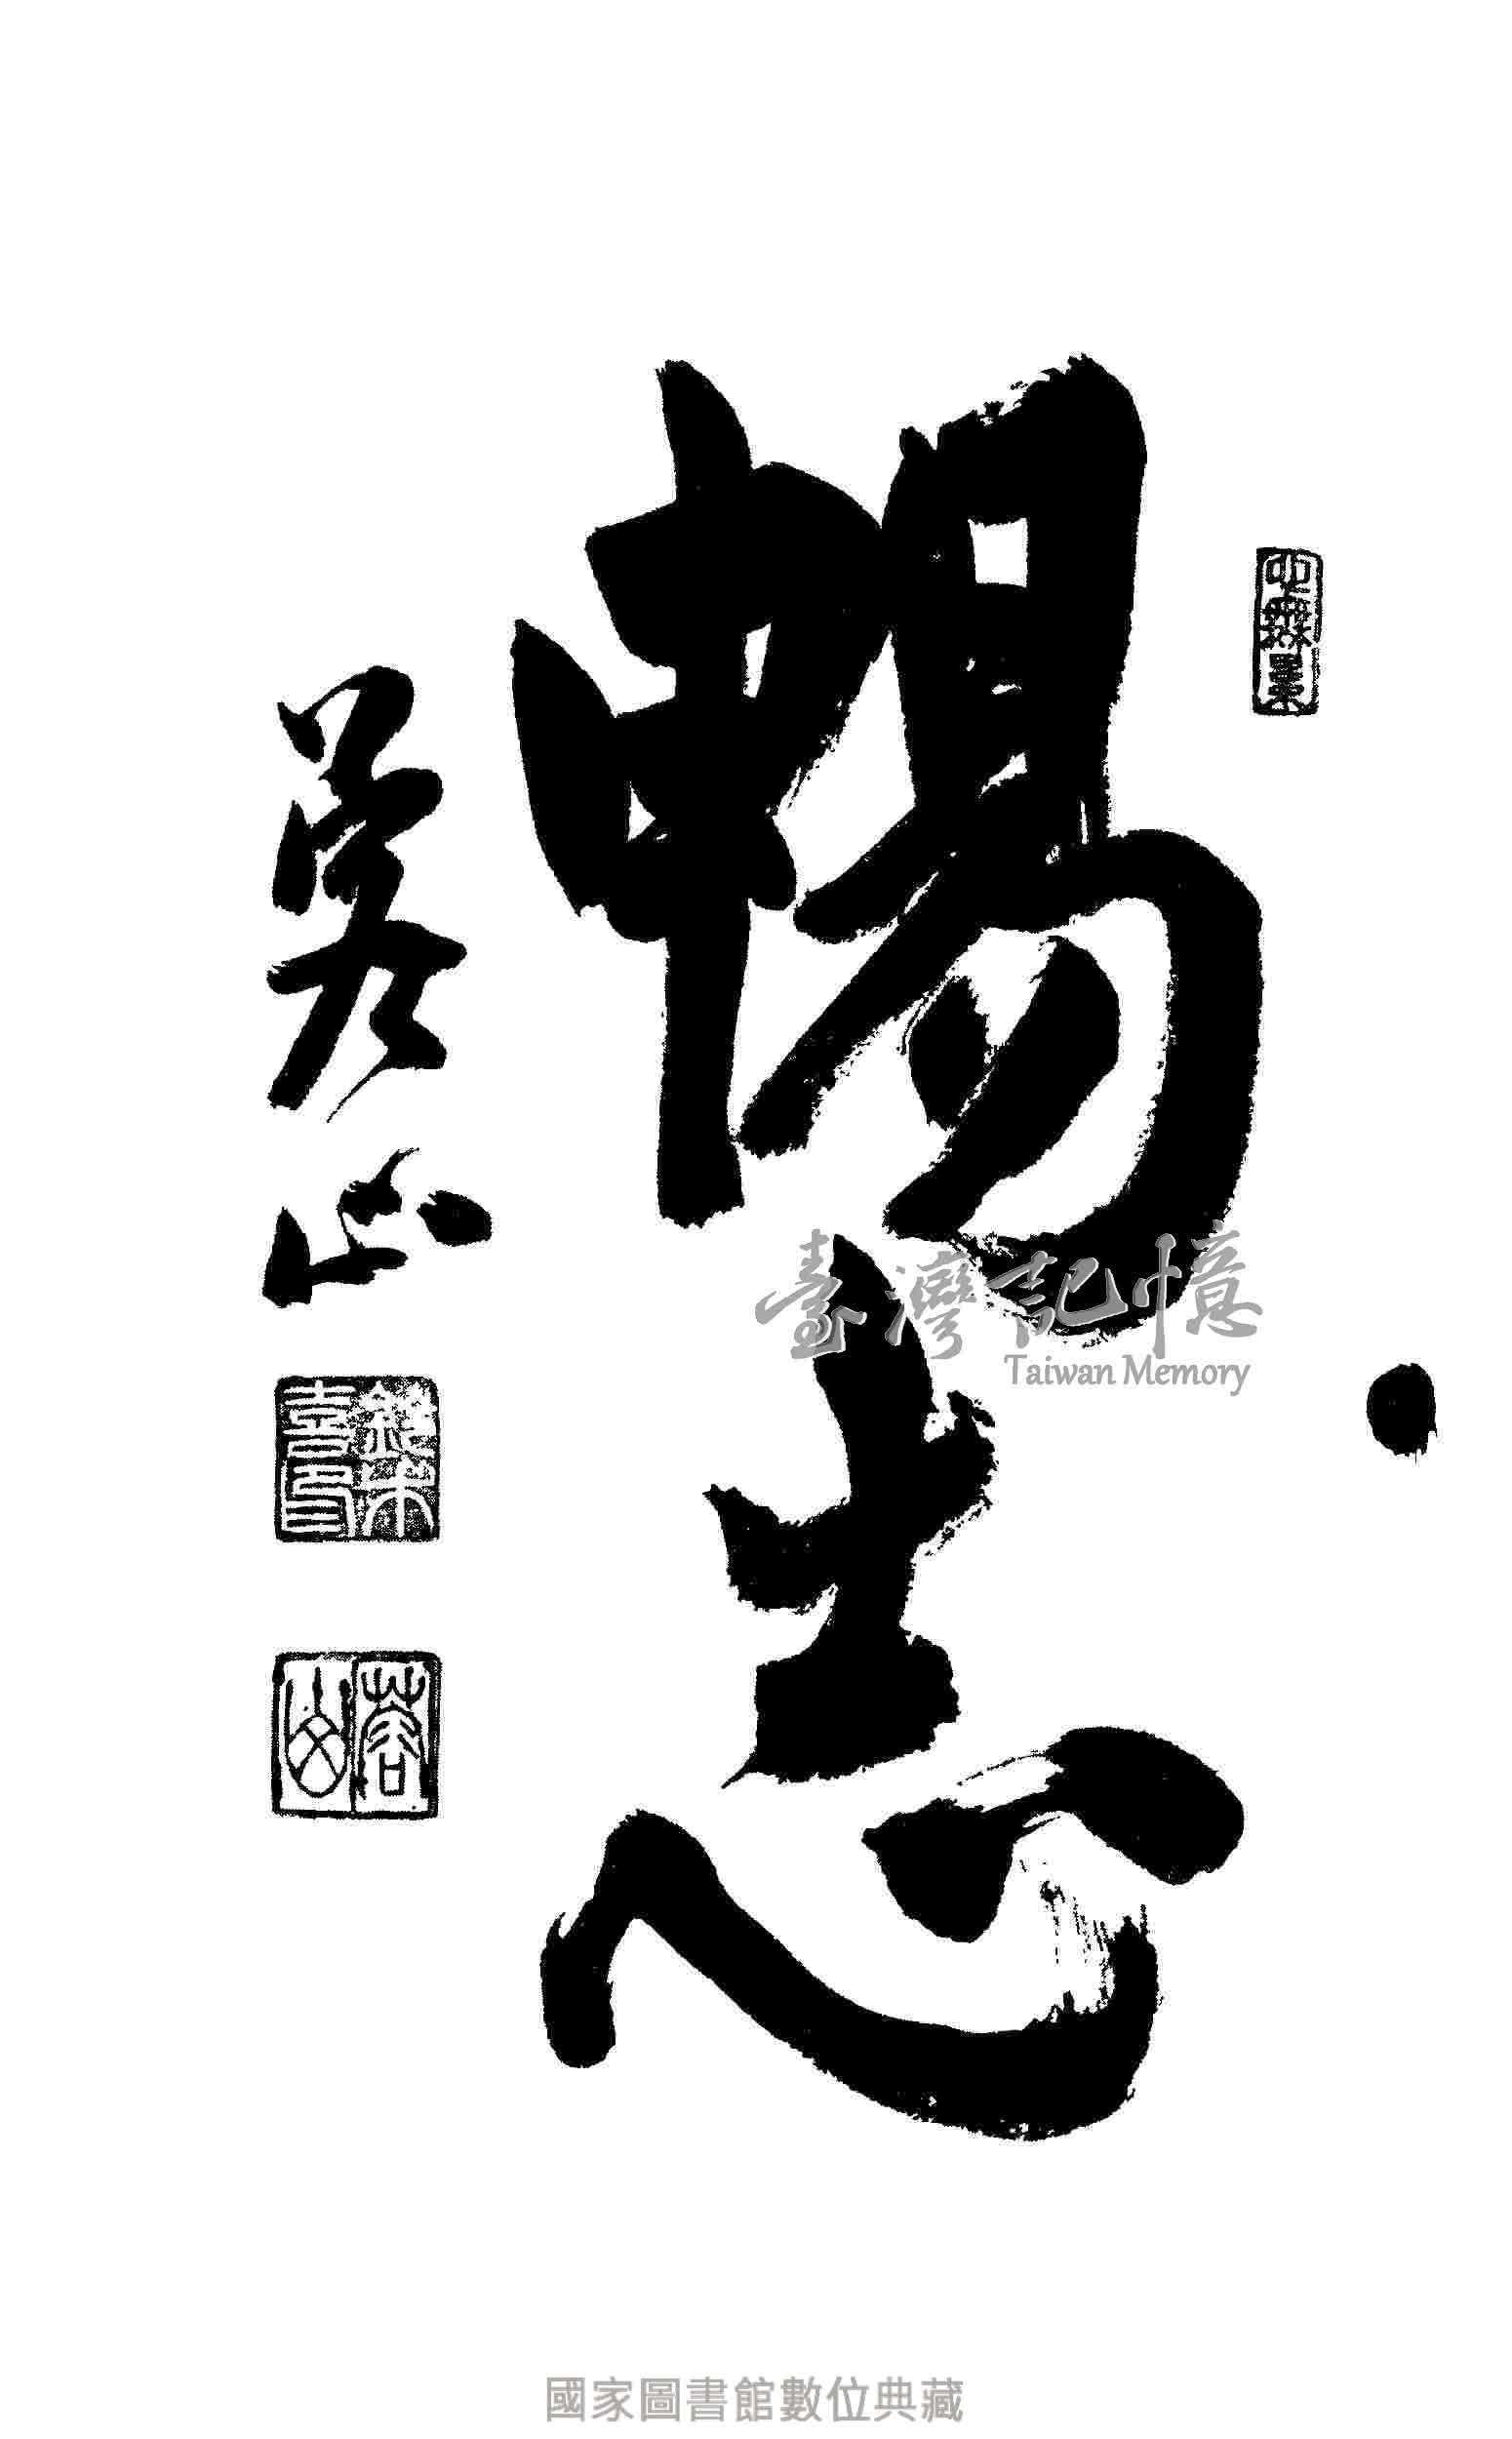 暢志
蓉山
蓉山
臺灣記憶
Taiwan Memory
國家圖書館數位典藏